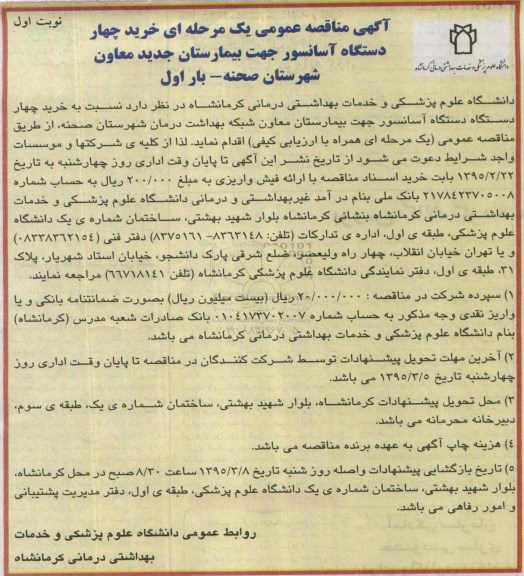 نوبت اول
آگهی مناقصه عمومی یک مرحله ای خرید چهار
دستگاه آسانسور جهت بیمارستان جدید معاون
شهرستان صحنه- بار اول
دانشگاه علوم پزشکی و خدمات بهداشتی درمانی کرمانشاه
دانشگاه علوم پزشکی و خدمات بهداشتی درمانی کرمانشاه در نظر دارد نسبت به خرید چهار
دستگاه دستگاه آسانسور جهت بیمارستان معاون شبکه بهداشت درمان شهرستان صحنه، از طریق
مناقصه عمومی (یک مرحله ای همراه با ارزیابی کیفی) اقدام نماید. لذا از کلیه ی شرکتها و موسسات
واجد شرایط دعوت می شود از تاریخ نشر این آگهی تا پایان وقت اداری روز چهارشنبه به تاریخ
۱۳۹۵/۲/۲۲ بابت خرید اسناد مناقصه با ارائه فیش واریزی به مبلغ ۲۰۰/۰۰۰ ریال به حساب شماره
۲۱۷۸۴۲۳۷۰۵۰۰۸ بانک ملی بنام در آمد غیربهداشتی و درمانی دانشگاه علوم پزشکی و خدمات
بهداشتی درمانی کرمانشاه بنشانی کرمانشاه بلوار شهید بهشتی، ساختمان شماره ی یک دانشگاه
علوم پزشکی، طبقه ی اول، اداره ی تدارکات (تلفن: ۸۳۶۳۱۴۸- ۸۳۷۵۱۶۱) دفتر فنی (۰۸۳۳۸۳۶۲۱۵۴)
و یا تهران خیابان انقلاب، چهار راه ولیعصر، ضلع شرقی پارک دانشجو، خیابان استاد شهریار، پلاک
۳۱، طبقه ی اول، دفتر نمایندگی دانشگاه علوم پزشکی کرمانشاه (تلفن ۶۶۷۱۸۱۴۱) مراجعه نمایند.
۱) سپرده شرکت در مناقصه : ۲۰/۰۰۰/۰۰۰ ریال (بیست میلیون ریال) بصورت ضمانتنامه بانکی و یا
واریز نقدی وجه مذکور به حساب شماره ۰۱۰۴۱۷۳۷۰۲۰۰۷ بانک صادرات شعبه مدرس (کرمانشاه)
بنام دانشگاه علوم پزشکی و خدمات بهداشتی درمانی کرمانشاه می باشد.
۲) آخرین مهلت تحویل پیشنهادات توسط شرکت کنندگان در مناقصه تا پایان وقت اداری روز
چهارشنبه تاریخ ۱۳۹۵/۳/۵ می باشد.
۳) محل تحویل پیشنهادات کرمانشاه، بلوار شهید بهشتی، ساختمان شماره ی یک، طبقه ی سوم،
دبیرخانه محرمانه می باشد.
۴) هزینه چاپ آگهی به عهده برنده مناقصه می باشد.
۵) تاریخ بازگشایی پیشنهادات واصله روز شنبه تاریخ ۱۳۹۵/۳/۸ ساعت ۸/۳۰ صبح در محل کرمانشاه،
بلوار شهید بهشتی، ساختمان شماره ی یک دانشگاه علوم پزشکی، طبقه ی اول، دفتر مدیریت پشتیبانی
و امور رفاهی می باشد.
روابط عمومی دانشگاه علوم پزشکی و خدمات
بهداشتی درمانی کرمانشاه